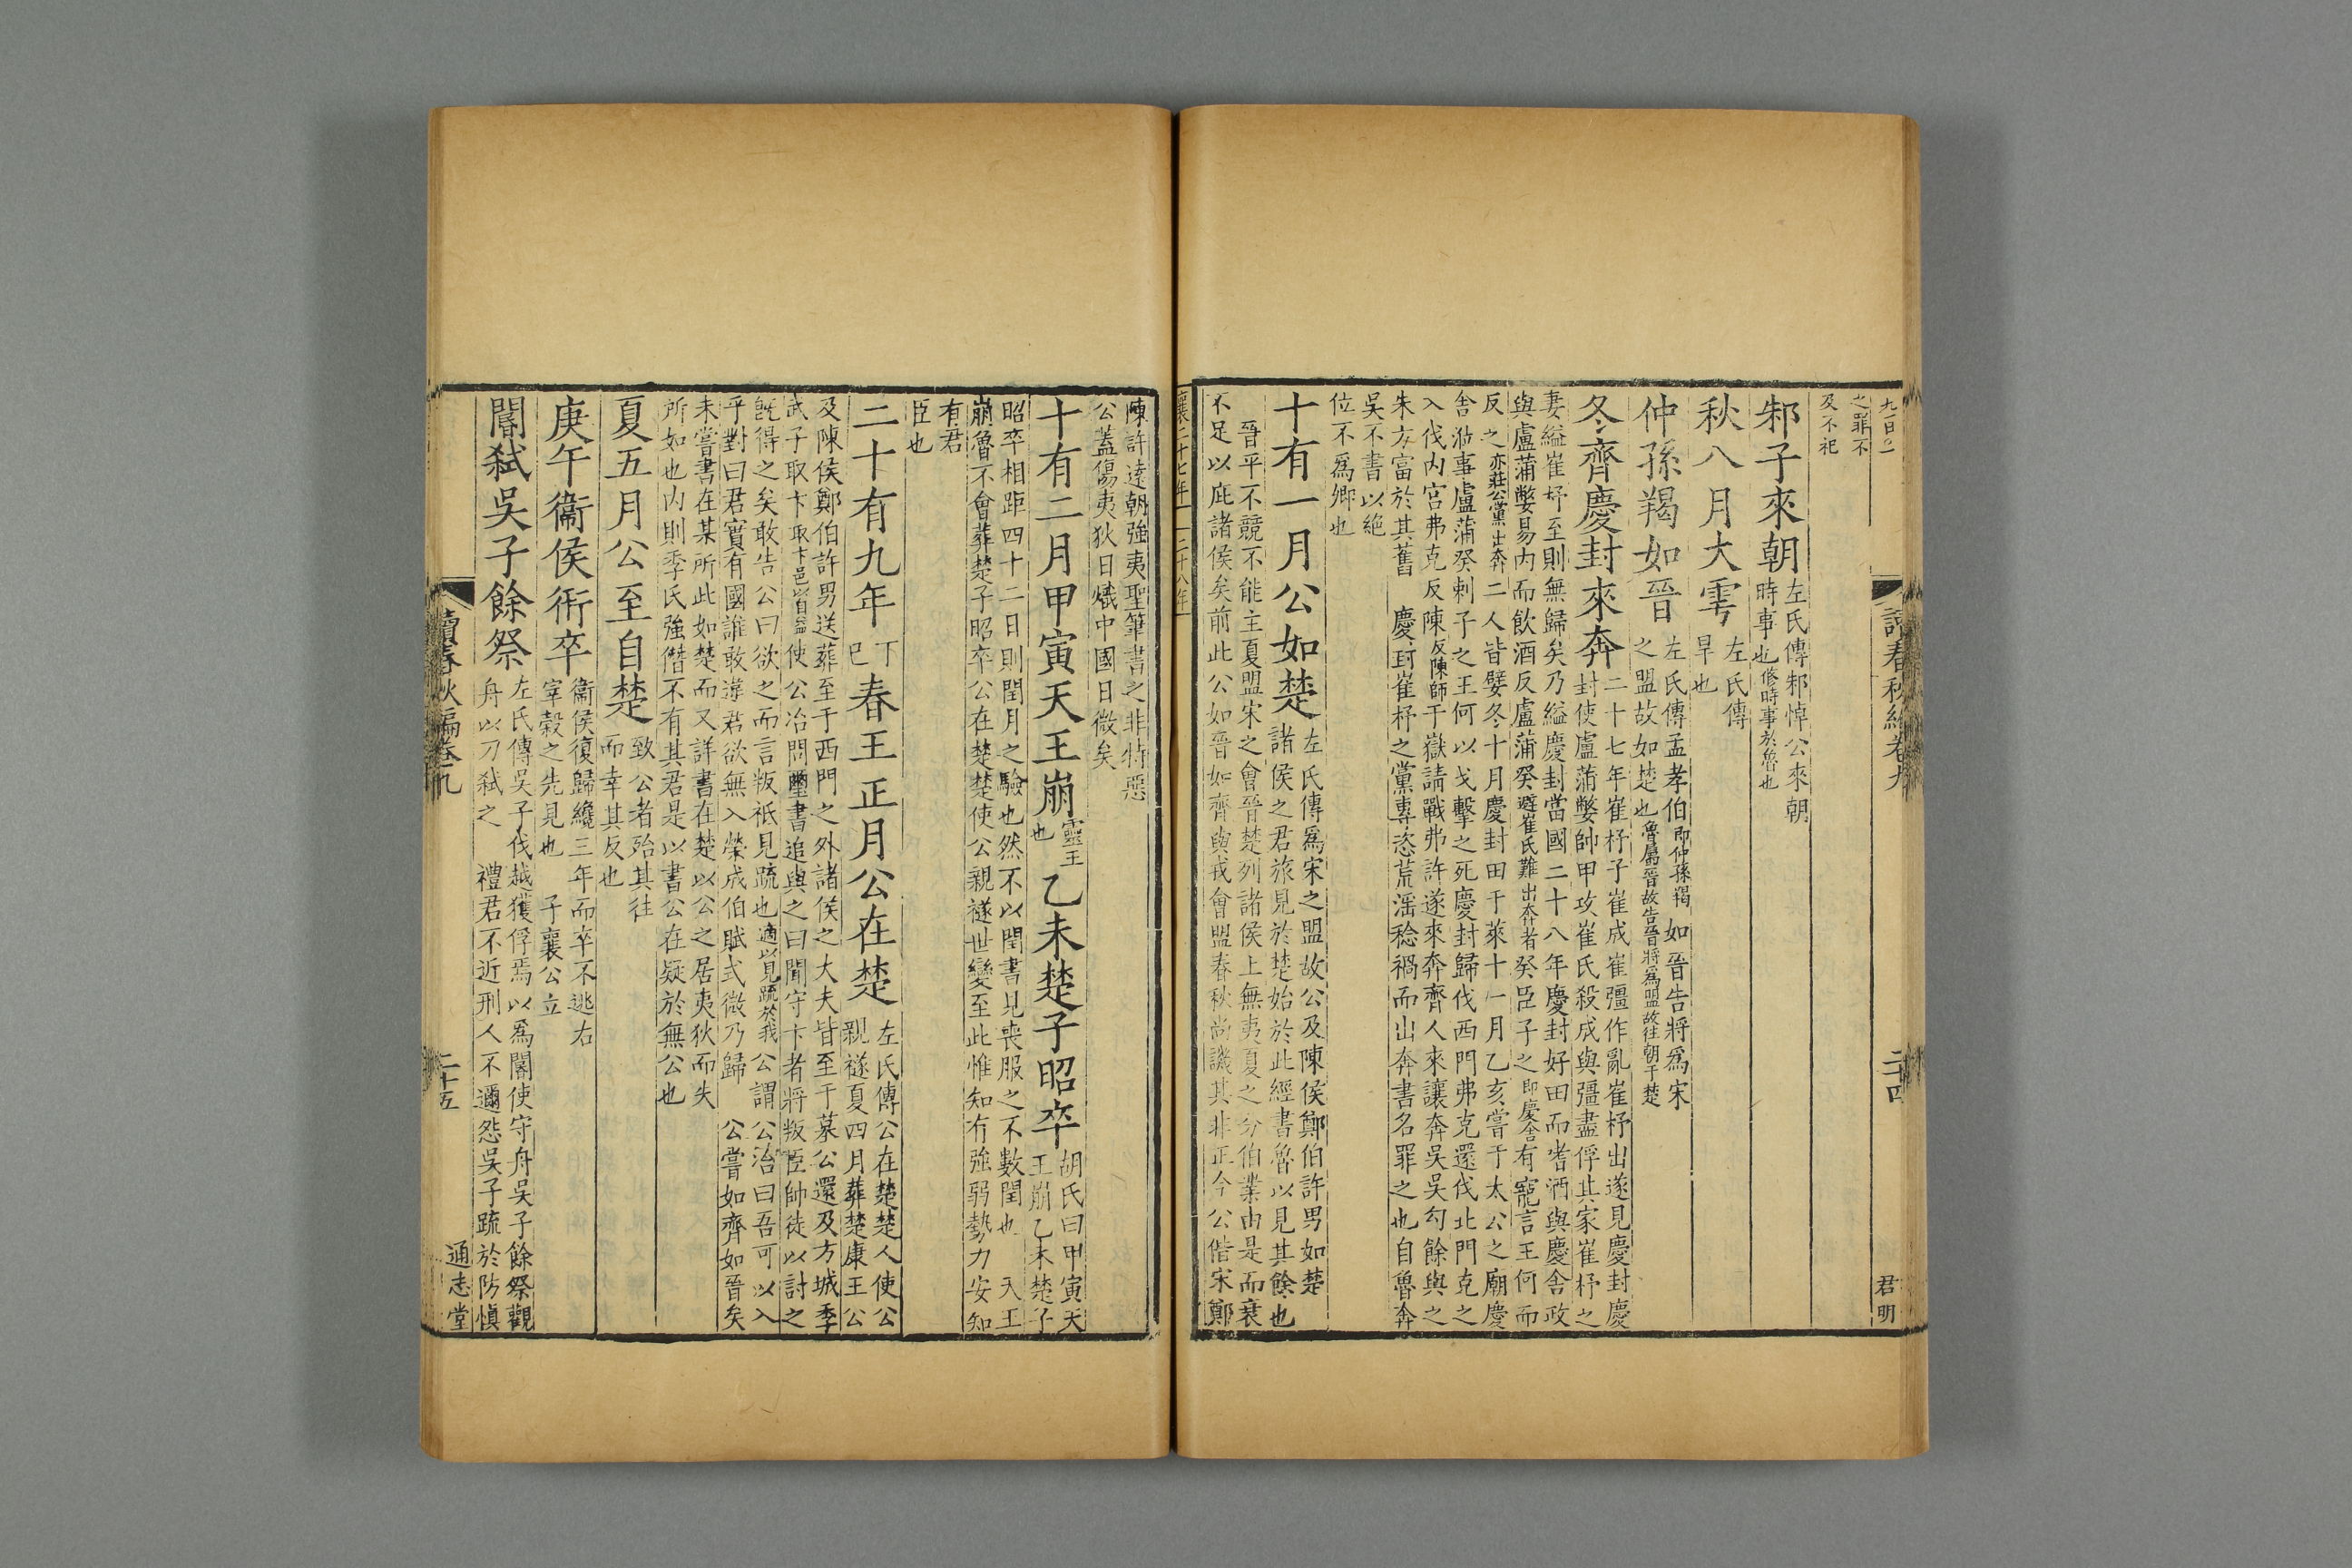 讀春秋編卷九
二十四
君明
之罪不
及不祀
邾子來朝
左氏傳邾悼公來朝
時事也修時事於魯也
秋八月大雩
左氏傳
旱也
仲孫羯如晉
左氏傳孟孝伯即仲孫羯如晉告將爲宋
之盟故如楚也魯屬晉故告晉將爲盟故往朝于楚
冬齊慶封來奔
二十七年崔杼子崔成崔彊作亂崔杼出遂見慶封慶
封使盧蒲嫳帥甲攻崔氏殺成與彊盡俘其家崔杼之
妻縊崔杼至則無歸矣乃縊慶封當國二十八年慶封好田而嗜酒與慶舍政
與盧蒲嫳易內而飲酒反盧蒲癸避崔氏難出奔者癸臣子之即慶舍有寵言王何而
反之亦莊公黨出奔二人皆嬖冬十月慶封田于萊十一月乙亥嘗于太公之廟慶
舍涖事盧蒲癸刺子之王何以戈擊之死慶封歸伐西門弗克還伐北門克之
入伐內宮弗克反陳反陳師于嶽請戰弗許遂來奔齊人來讓奔吳吳勾餘與之
朱方富於其舊 慶封崔杼之黨專恣荒淫稔禍而出奔書名罪之也自魯奔
吳不書以絶
位不爲卿也
十有一月公如楚
左氏傳爲宋之盟故公及陳侯鄭伯許男如楚
諸侯之君旅見於楚始於此經書魯以見其餘也
晉平不競不能主夏盟宋之會晉楚列諸侯上無夷夏之分伯業由是而衰
不足以庇諸侯矣前此公如晉如齊與戎會盟春秋尚譏其非正今公偕宋鄭
襄二十七年 二十八年
陳許遠朝強夷聖筆書之非特惡
公蓋傷夷狄日熾中國日微矣
十有二月甲寅天王崩
靈王
也
乙未楚子昭卒
胡氏曰甲寅天
王崩乙未楚子
昭卒相距四十二日則閏月之驗也然不以閏書見喪服之不數閏也 天王
崩魯不會葬楚子昭卒公在楚楚使公親襚世變至此惟知有強弱勢力安知
有君
臣也
二十有九年
丁
巳
春王正月公在楚
左氏傳公在楚楚人使公
親襚夏四月葬楚康王公
及陳侯鄭伯許男送葬至于西門之外諸侯之大夫皆至于墓公還及方城季
武子取卞取卞邑以自益使公冶問璽書追與之曰聞守卞者將叛臣帥徒以討之
既得之矣敢告公曰欲之而言叛祇見疏也適以見疏於我公謂公冶曰吾可以入
乎對曰君實有國誰敢違君欲無入榮成伯賦式微乃歸 公嘗如齊如晉矣
未嘗書在某所此如楚而又詳書在楚以公之居夷狄而失
所如也內則季氏強僭不有其君是以書公在疑於無公也
夏五月公至自楚
致公者殆其往
而幸其反也
庚午衞侯衎卒
衞侯復歸纔三年而卒不逃右
宰穀之先見也 子襄公立
閽弑吳子餘祭
左氏傳吳子伐越獲俘焉以爲閽使守舟吳子餘祭觀
舟以刀弑之 禮君不近刑人不邇怨吳子疏於防愼
讀春秋編卷九
二十五
通志堂